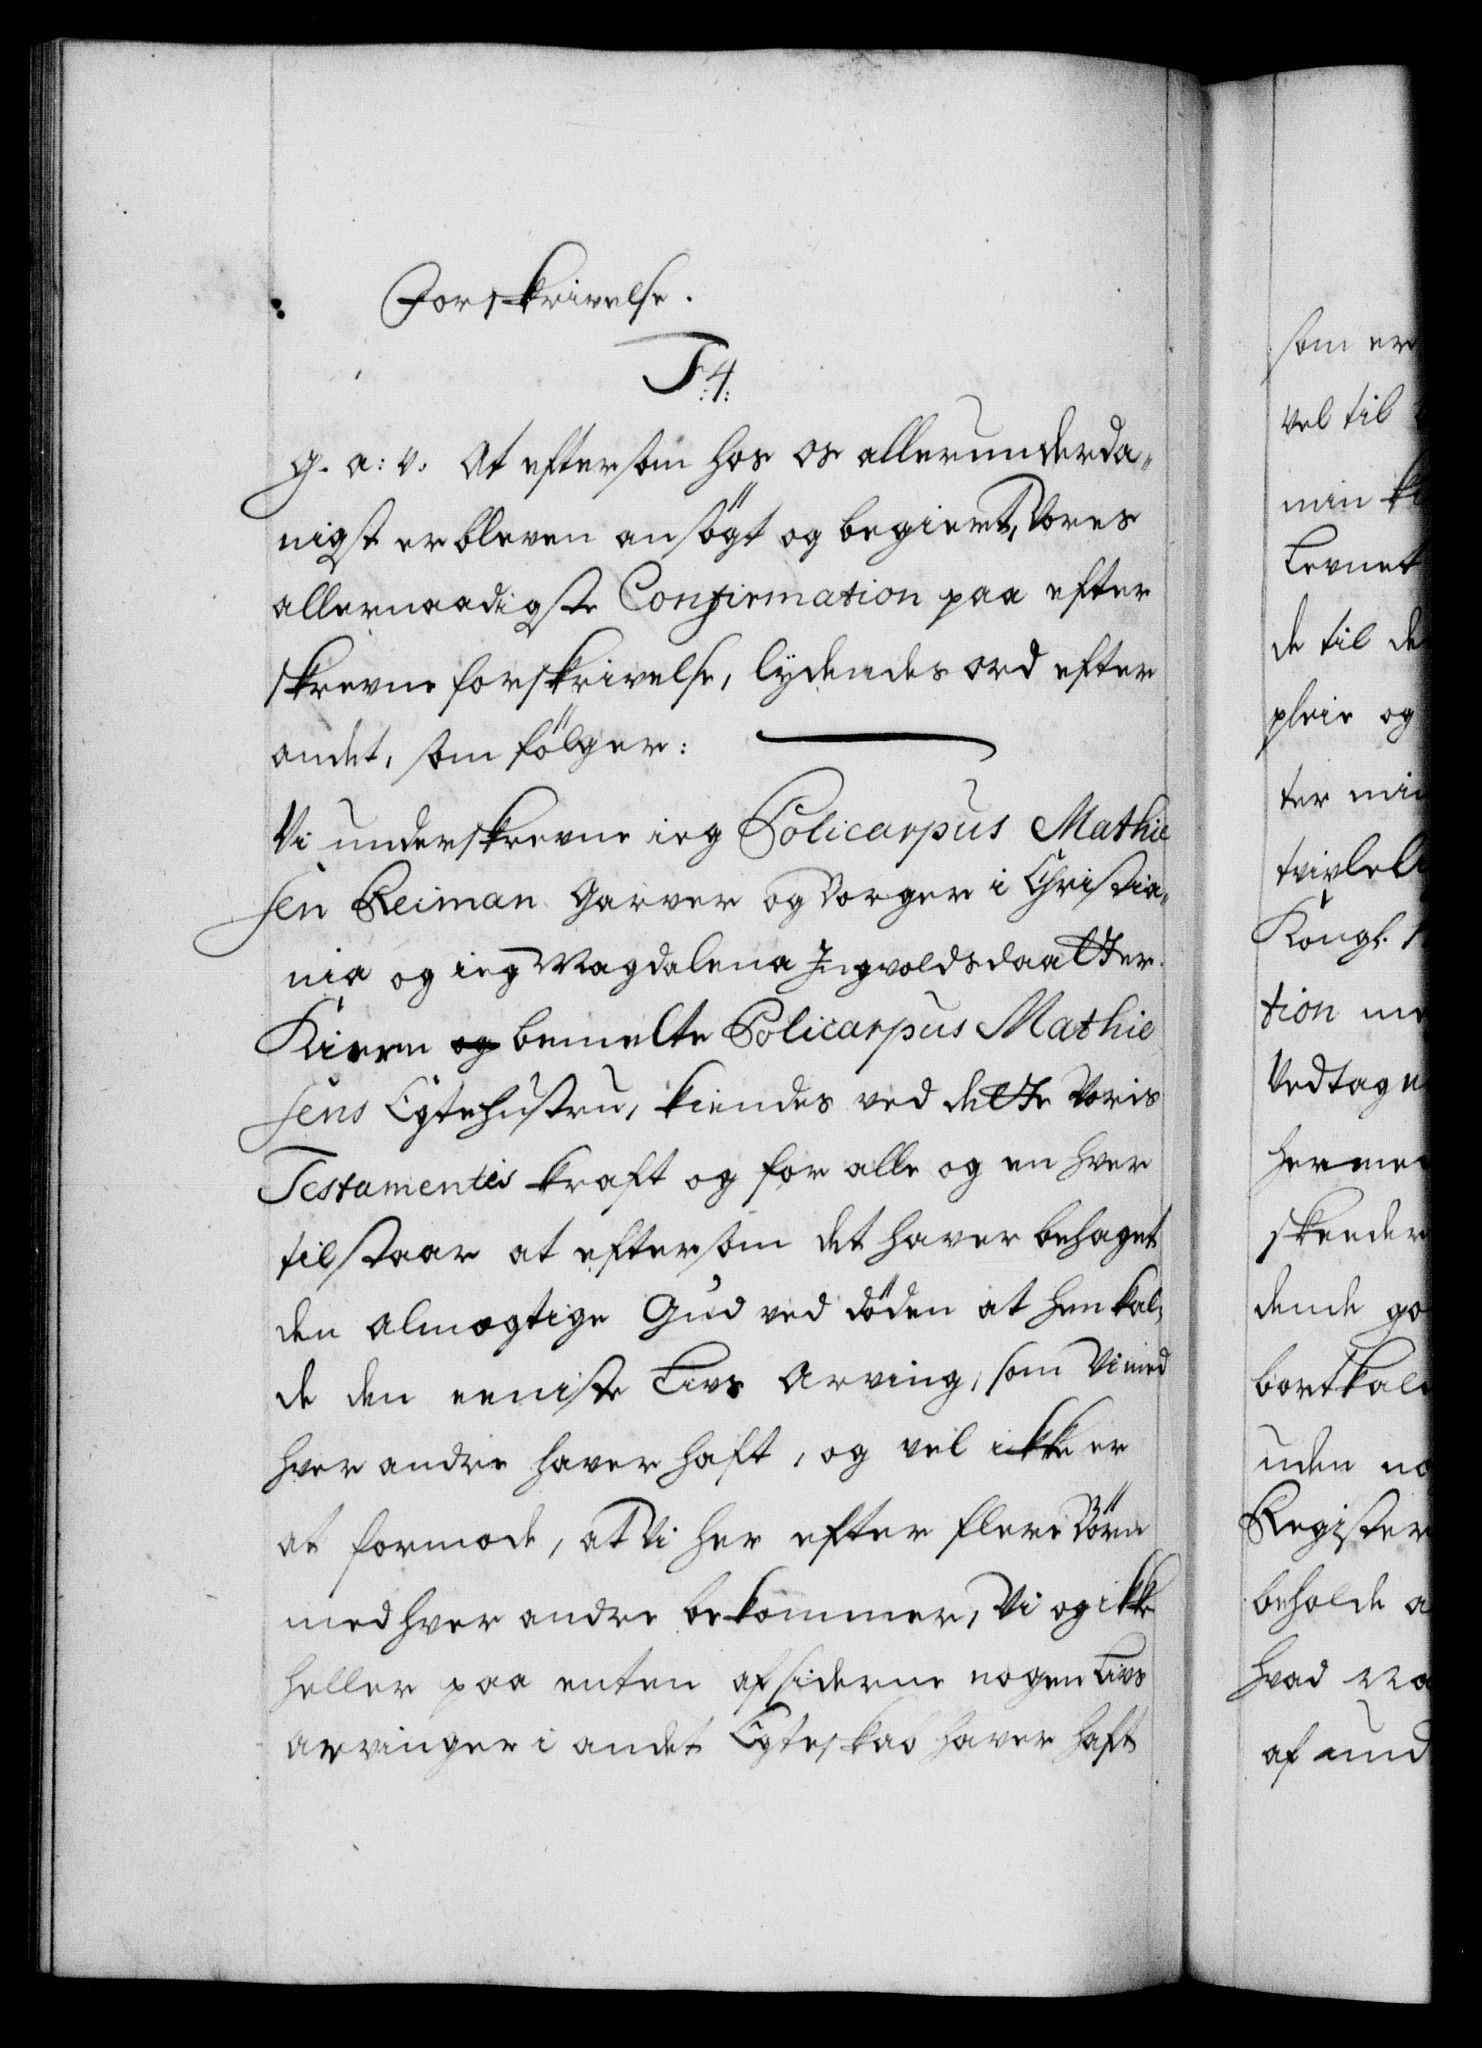 Forskrivelse.
F:4:
G. a: v. At eftersom hos os allerunderda„
nigst er bleven ansögt og begiert, Vores
allernaadigste Confirmation paa efter
skrevne forskrivelse, lydendes ord efter
andet, som fölger:
Vi underskrevne ieg Policarpus Mathie
sen Reiman Garver og Borger i Christia„
nia og ieg Magdalena Ingvoldsdaatter
Kiern og bemelte Policarpus Mathie
sens Egtehustru, kiendes ved dette Voris
Testamentes kraft og for alle og en hver
tilstaar at eftersom det haver behaget
den almægtige Gud ved döden at henkal„
de den eeniste Livs Arving, som Vi med
hver andre haver haft, og vel ikke er
at formode, at Vi her efter flere Börn
med hver andre bekommer, Vi og ikke
heller paa enten af siderne nogen Livs
Arvinger i andet Egteskab haver haft
som er
vel til
min
Levnet
de til de
pleie og
ter min
tvivle
Kongl.
tion me
Vedtagn
herme
skeeder
dende go
bortkal
uden no
Register
beholde a
hvad
af und